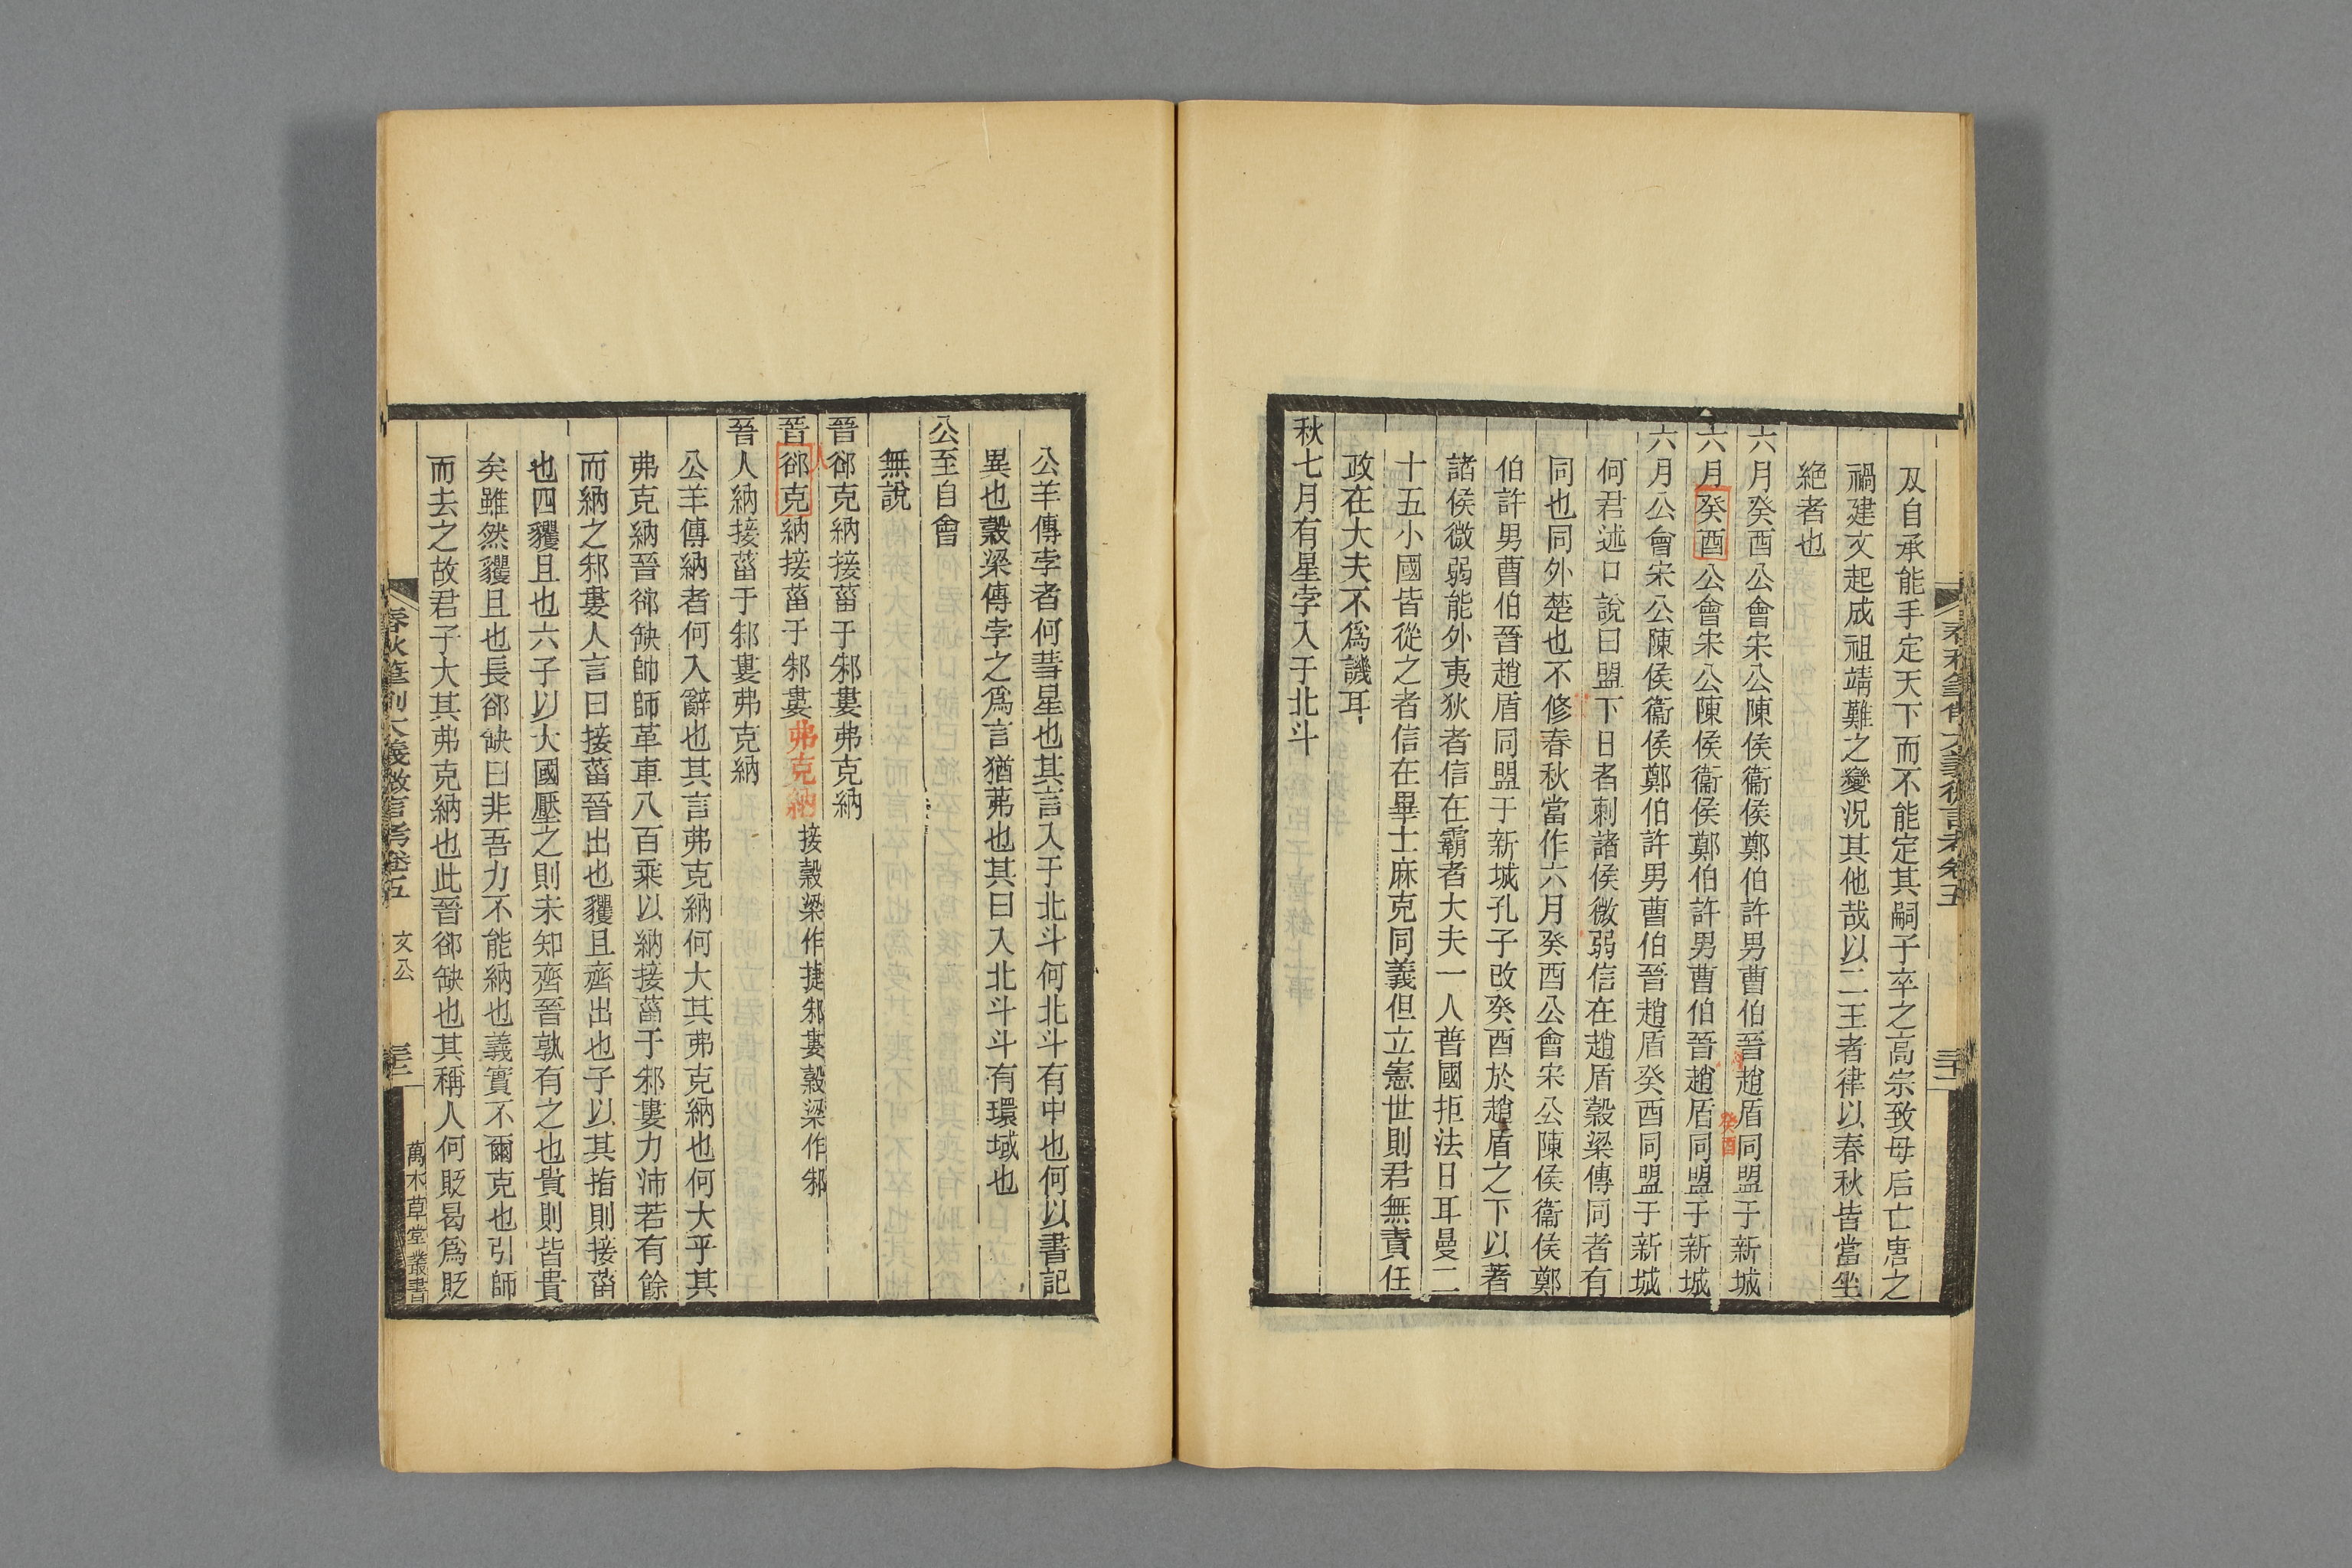 及自承能手定天下而不能定其嗣子卒之高宗致母后亡唐之
禍建文起成祖靖難之變況其他哉以二王者律以春秋皆當坐
絶者也
六月癸酉公會宋公陳侯衞侯鄭伯許男曹伯晉趙盾同盟于新城
六月癸酉公會宋公陳侯衞侯鄭伯許男曹伯晉趙盾癸酉同盟于新城
六月公會宋公陳侯衞侯鄭伯許男曹伯晉趙盾癸酉同盟于新城
何君述口說曰盟下日者刺諸侯微弱信在趙盾穀梁傳同者有
同也同外楚也不修春秋當作六月癸酉公會宋公陳侯衞侯鄭
伯許男曹伯晉趙盾同盟于新城孔子改癸酉於趙盾之下以著
諸侯微弱能外夷狄者信在霸者大夫一人普國拒法日耳曼二
十五小國皆從之者信在畢士麻克同義但立憲世則君無責任
政在大夫不爲譏耳
秋七月有星孛入于北斗
公羊傳孛者何彗星也其言入于北斗何北斗有中也何以書記
異也穀梁傳孛之爲言猶茀也其曰入北斗斗有環域也
公至自會
無說
晉郤克納接菑于邾婁弗克納
晉人郤克納接菑于邾婁弗克納接穀梁作捷邾婁穀梁作邾
晉人納接菑于邾婁弗克納
公羊傳納者何入辭也其言弗克納何大其弗克納也何大乎其
弗克納晉郤缺帥師革車八百乘以納接菑于邾婁力沛若有餘
而納之邾婁人言曰接菑晉出也貜且齊出也子以其指則接菑
也四貜且也六子以大國壓之則未知齊晉孰有之也貴則皆貴
矣雖然貜且也長郤缺曰非吾力不能納也義實不爾克也引師
而去之故君子大其弗克納也此晉郤缺也其稱人何貶曷爲貶
春秋筆削大義微言考卷五 文公 三十二 萬木草堂叢書